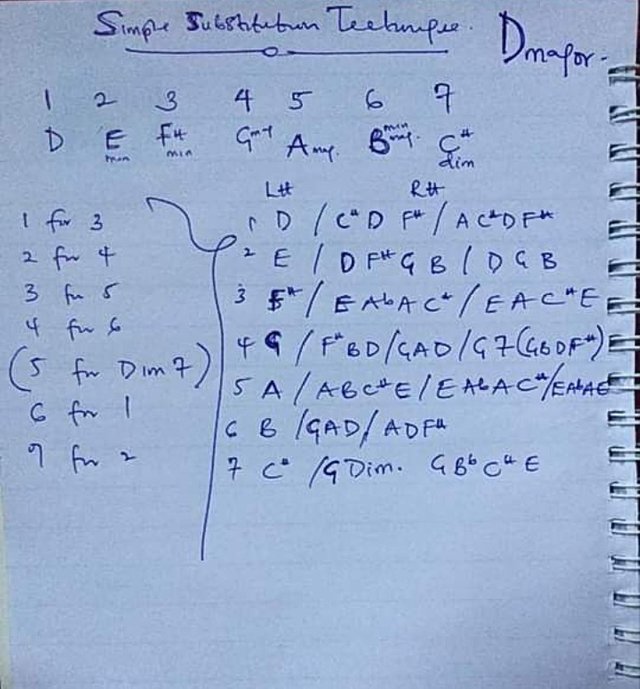 Simple Substitution Technique.
D major.
1 2 3 4 5 6 7
D E min F# min G maj A maj. B min C# dim
LH RH
1 for 3
2 for 4
3 for 5
4 for 6
(5 for Dim 7)
6 for 1
7 for 2
1 D / C# D F# / A C# D F#
2 E / D F# G B / D G B
3 F# / E Ab A C# / E A C# E
4 G / F# B D / G A D / G 7 (G B D F#)
5 A / A B C# E / E Ab A C# / E Ab A E
6 B / G A D / A D F#
7 C# / G Dim. G Bb C# E